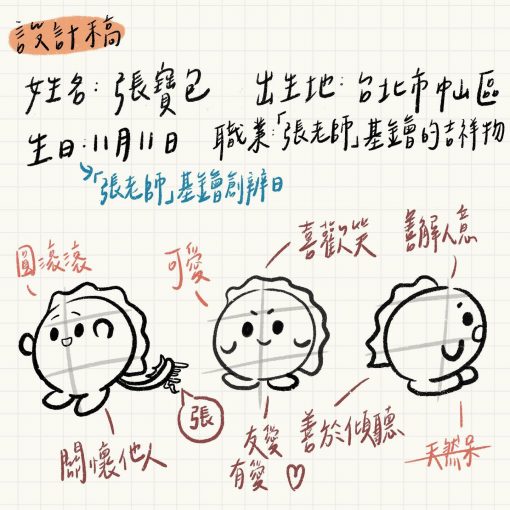 設計稿
姓名:張寶包 出生地:台北市中山區
生日:11月11日 職業:「張老師」基金會的吉祥物
「張老師」基金會創辦日
圓滾滾
可愛
喜歡笑
善解人意
張
關懷他人
友愛
有愛♡
善於傾聽
天然呆